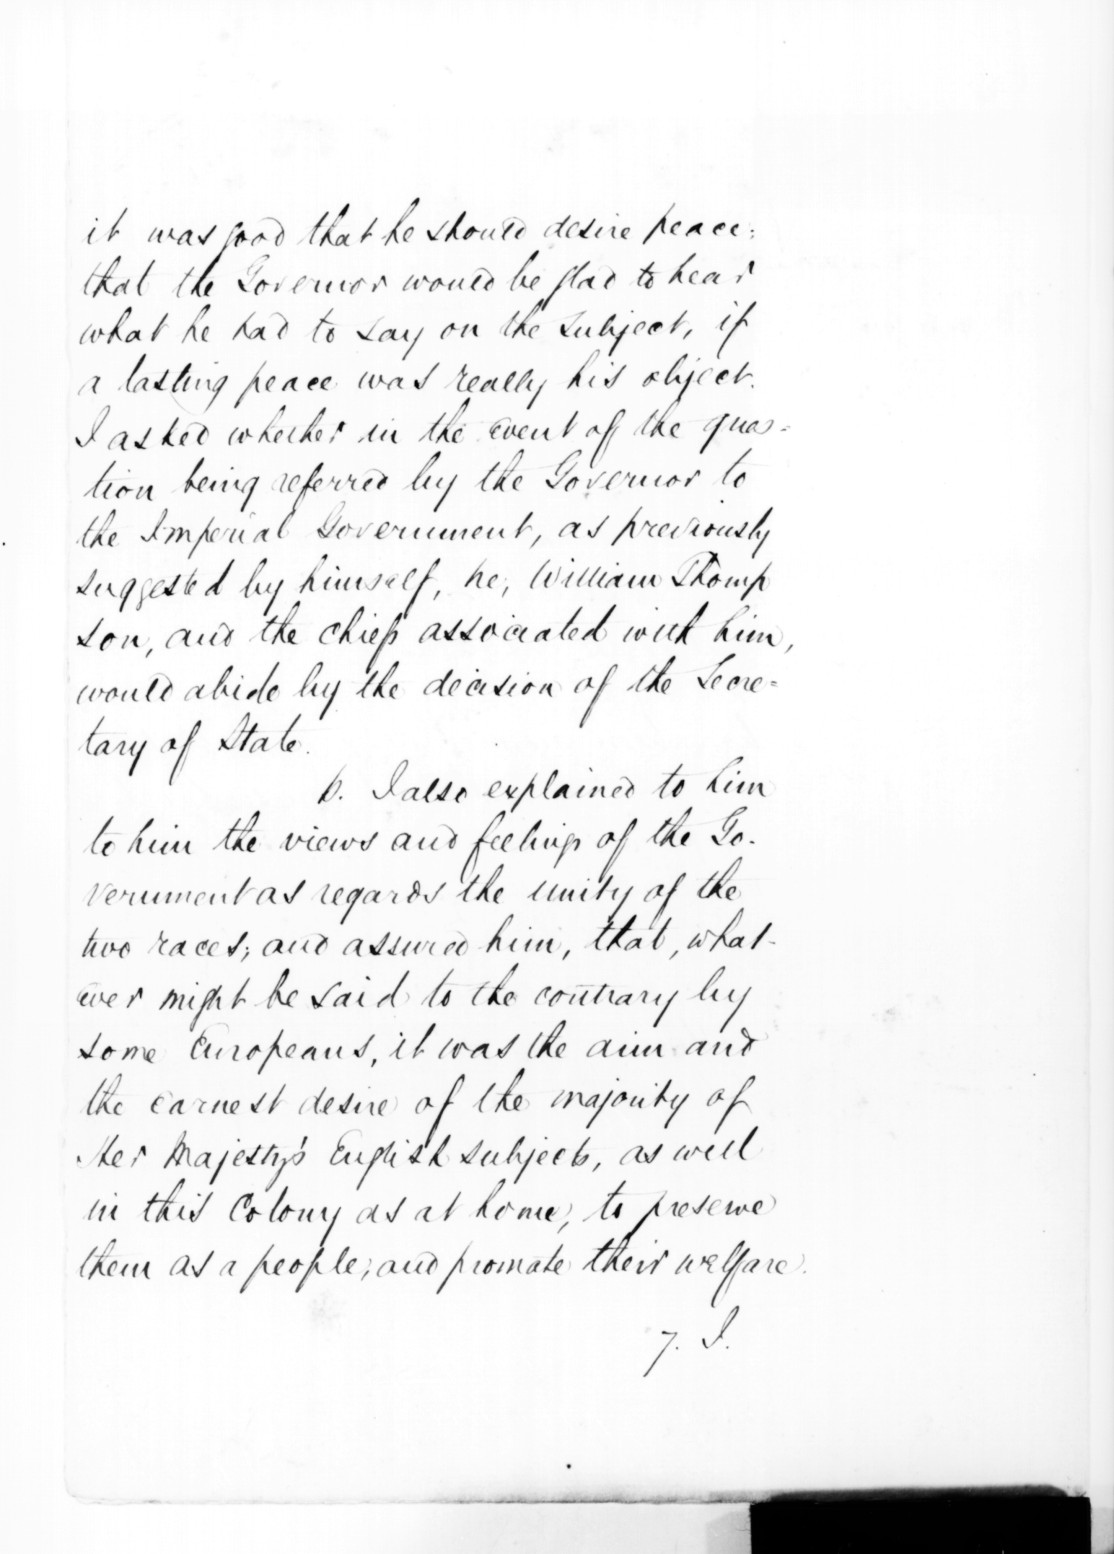 it was good that he should desire peace;
that the Governor would be glad to hear
what he had to say on the subject, if
a lasting peace was really his object.
I asked whether in the event of the ques=
tion being referred by the Governor to
the Imperial Government, as previously
suggested by himself, he, William Thomp
son, and the chiefs associated with him,
would abide by the decision of the Secre=
tary of State.
6. I also explained to him
to him the views and feelings of the Go-
vernment as regards the unity of the
two races; and assured him, that, what-
ever might be said to the contrary by
some Europeans, it was the aim and
the earnest desire of the majority of
Her Majesty's English subjects, as well
in this Colony as at home, to preserve
them as a people; and promote their welfare.
7. I.